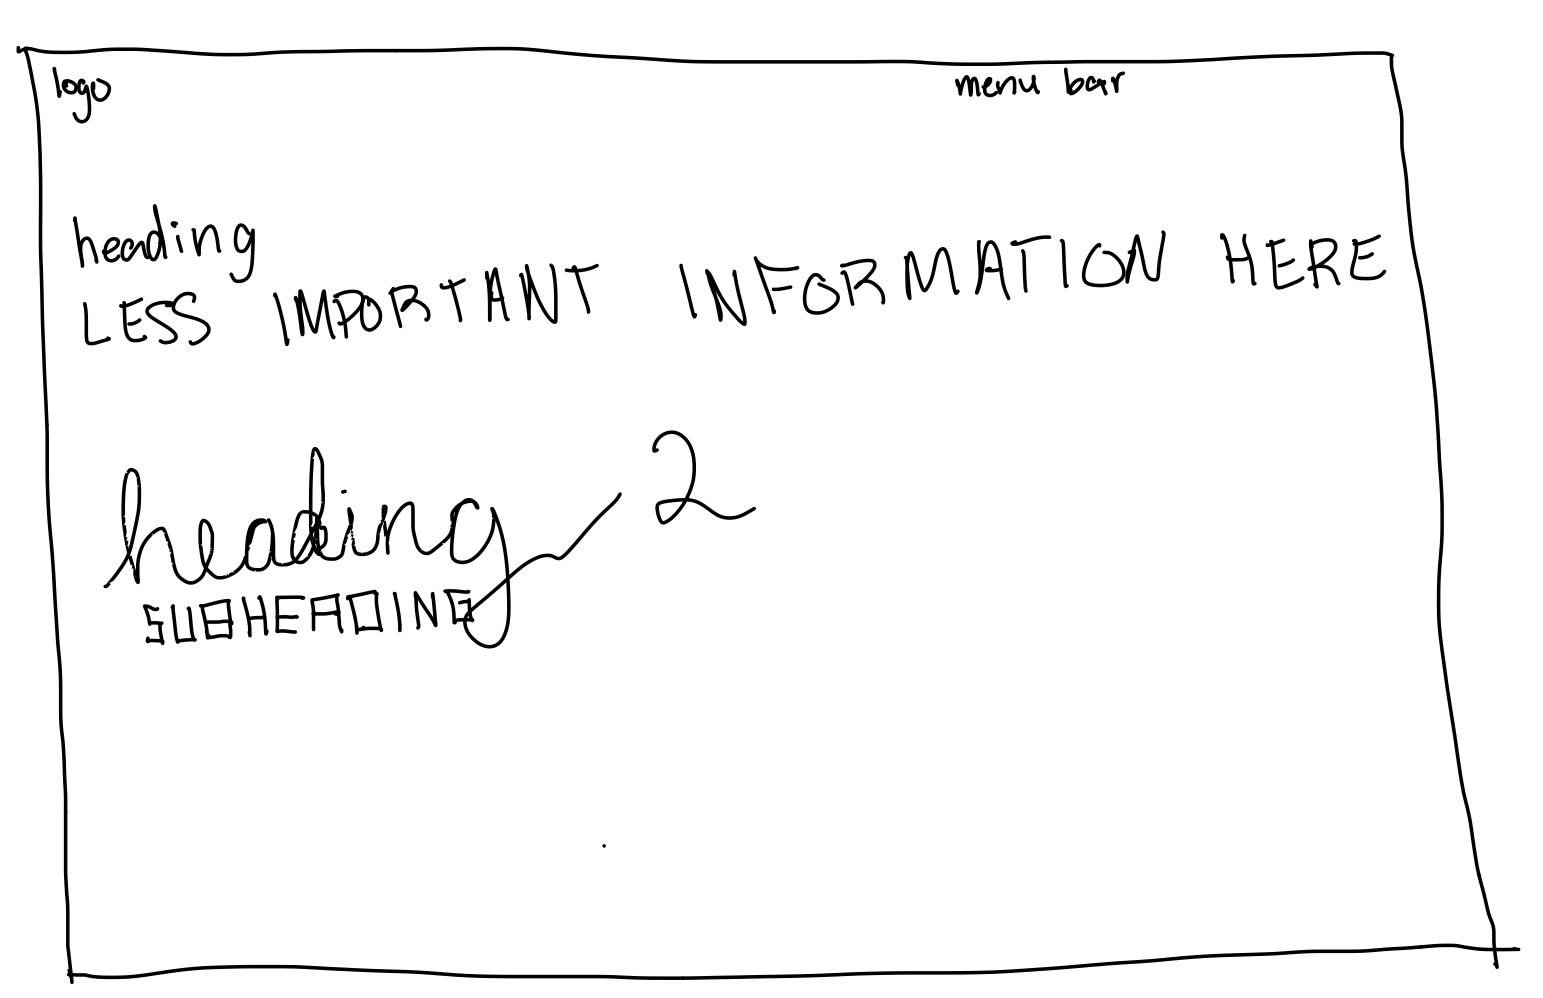 logo
menu bar
heading
LESS IMPORTANT INFORMATION HERE
heading 2
SUBHEADING